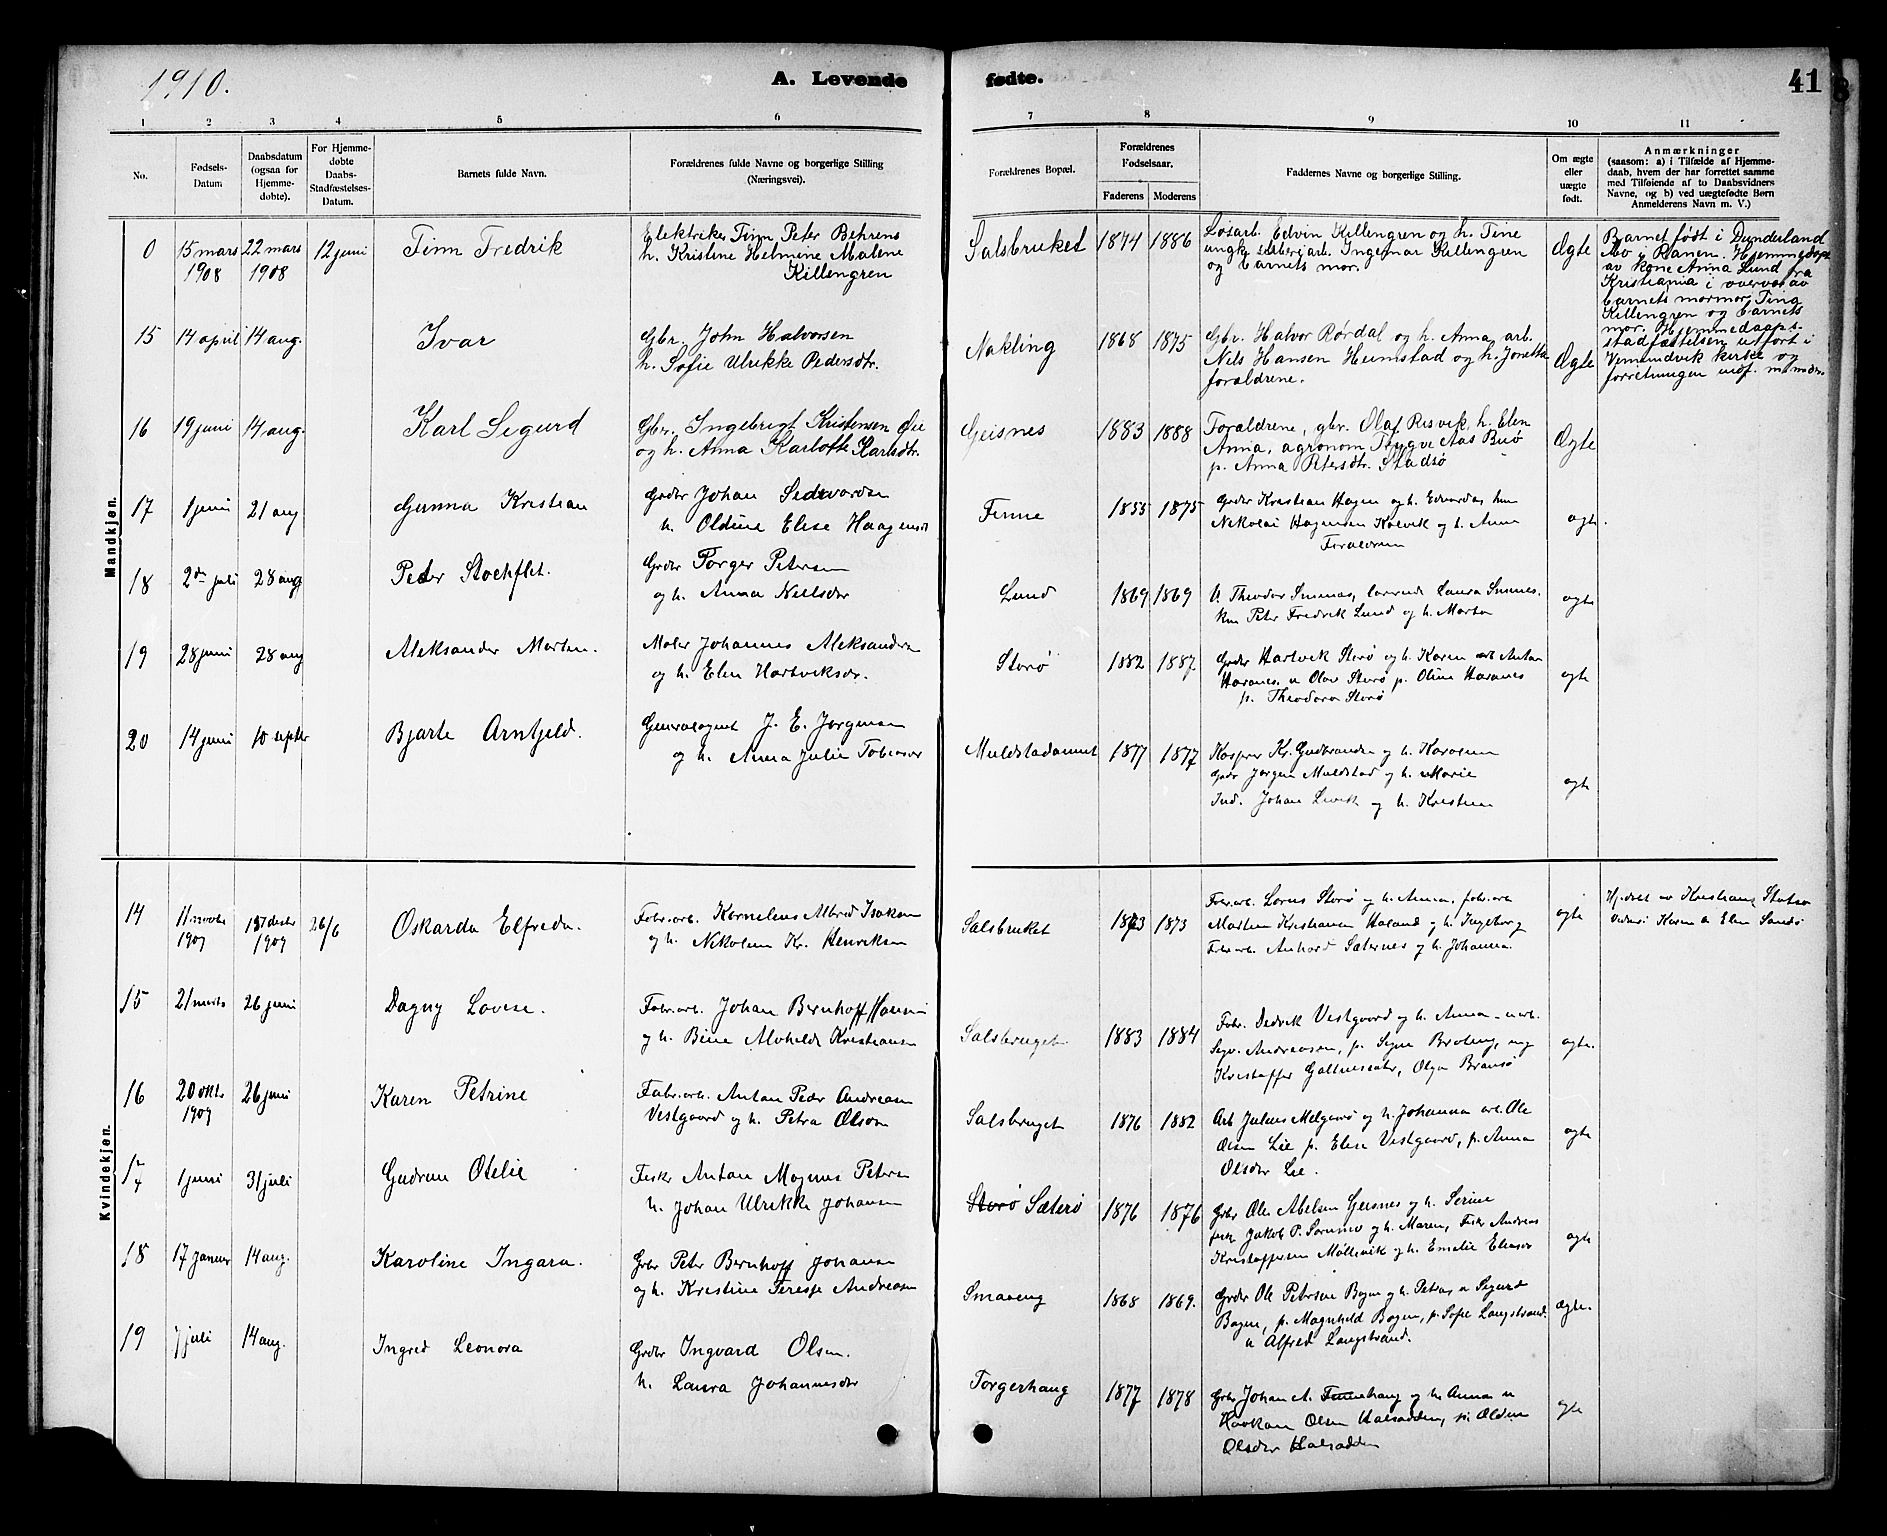 1910.
A. Levende
fødte.
41
1 2 3 4 5 6 7 8 9 10 11
No.
Fødsels-
Datum
Daabsdatum
(ogsaa for
Hjemme-
døbte).
For Hjemme-
døbte
Daabs-
Stadfæstelses-
Datum.
Barnets fulde Navn.
Forældrenes fulde Navne og borgerlige Stilling
(Næringsvei).
Forældrenes Bopæl.
Forældrenes
Fødselsaar.
Faderens Moderens
Faddernes Navne og borgerlige Stilling.
Om ægte
eller
uægte
født.
Anmærkninger
(saasom: a) i Tilfælde af Hjemme-
daab, hvem der har forrettet samme
med Tilføiende af to Daabsvidners
Navne, og b) ved uægtefødte Børn
Anmelderens Navn m. V.)
Mandkjøn.
0 15 mars 22 mars 12 juni Finn Fredrik
1908 1908
Elektriker Finn Peter Behrens
h. Kristine Helmine Malene
Killengren
Salsbruket 1874 1886
Løsarb. Edvin Killengren og h. Tine
ungk. arb. Ingemar Killengren
og barnets mor.
Ægte
Barnet født i Dunderland
Mo i Ranen. Hjemmedøpt
av kone Anna Lund fra
Kristiania i overvær av
barnets mormor Tine
Killengren og barnets
mor. Hjemmedaaps-
stadfæstelsen utført i
Vemundvik kirke og
forretningen
15 14 april 14 aug. Ivar
Gbr. John Halvorsen
h. Sofie Ulrikke Pedersdtr.
Nakling 1868 1875
Gbr. Halvor Rørdal og h. Anna, arb.
Nels Hansen Heimstad og h. Jonetta
foraldrene.
Ægte
16 19 juni 14 aug. Karl Sigurd
Gbr. Ingebrigt Kristensen Øie
og h. Anna Karlotte Karlsdtr.
Geisnes 1883 1888
Foraldrene, gbr. Olaf Risvik, h. Elen
Anna, agronom Trygve Aas Buø
p. Anna Petersdtr. Stadsø
Ægte
17 1 juni 21 aug Gunna Kristian
Grdbr Johan Sedvardsen
h. Oldine Elise Haagensdr
Finne 1855 1875
Grdbr Kristian Hagen og h. Edvarda,
Nikolai Hagensen Kolvik og h. Anna
Foraldren
ægte.
18 2den juli 28 aug Peder Stockflet.
Grdbr Torger Petersen
og h. Anna Nelsdr
Lund 1869 1869
U. Theodor Sinnes, Laura Sinnes.
Peter Fredrik Lund og h. Marta
ægte
19 28 juni 28 aug Aleksander Marten.
Maler Johannes Aleksandersen
og h. Elen Hartviksdr.
Storø 1882 1887
Grdbr Hartvik Storø og h. Karen arb Anton
Haranes u Olav Storø p. Oline Haranes
p. Theodora Storø
ægte
20 14 juni 10 septbr Bjarte Arntjeld.
Generalagent J. E. Jørgensen
og h. Anna Julie Tobiasdr
Muldstadaunet 1877 1877
Kasper Kr. Gudbrandsen og h. Karoline
Grdr Jørgen Muldstad og h. Marie
Ind. Johan Livik og h. Kristine
ægte
Kvindekjøn.
14 11 novbr 15 desbr 26/6 Oskarda Elfreda.
1909 1909
Fabr.arb. Kornelius Albred Isaksen
og h. Nikoline Kr. Henriksen
Salsbruket 1873 1873
Fabr.arb. Lorns Storø og h. Anna, fabr.arb
Martin Kristiansen Haland og h. Ingeborg
Fabr.arb. Anhard Sæternes og h. Johanna.
ægte
15 21 marts 26 juni Dagny Lovise.
Fabr.arb. Johan Bernhoff Hansen
og h. Bine Alvhilde Kristiansen
Salsbruget 1883 1884
Fabr. Dedrik Vestgaard og h. Anna
Andreassen, p. Signe Broteng, ung
Kristoffer Galtnessæter, Olga Bransø
ægte.
16 20 oktr 26 juni Karen Petrine
1909
Fabr.arb. Anton Peder Andreasen
Vestgaard og h. Petra Olson
Salsbruget 1876 1882
Arb Julius Melgaard og h. Johanna arb. Ole
Olsen Lie p. Elise Vestgaard, p. Anna
Olsdtr Lie.
ægte
17 1 juni 31 juli Gudrun Otelie
Fisker Anton Magnus Petersen
h. Johan Ulrikke Johansen
Storø Sæterø 1876 1876
Grbr Ole Abelsen Geisnes og h. Serine
fisk Jakob P. Sormo og h. Maren, Fisk Andreas
Kristoffersen Møllevik og h. Emelie Eliasdr
ægte
18 17 januar 14 aug. Karoline Ingara.
Grbr Peter Bernhoff Johansen
og h. Kristine Teresse Andreasen
Smaaeng 1868 1869.
Grdbr Ole Petersen Bogen og h. Petra, u Sigurd
Bogen, p. Magnhild Bogen, p. Sofie Langstrand
u Alfred Langstrand.
ægte.
19 7 juli 14 aug. Ingred Leonora
Grdbr Ingvard Olsen.
h. Laura Johannesdtr
Torgerhaug 1877 1878
Grbr Johan A. Finnehaug og h. Anna u
Haakon Olsen Halsadden, p. Oldine
Olsdtr Halsadden
ægte